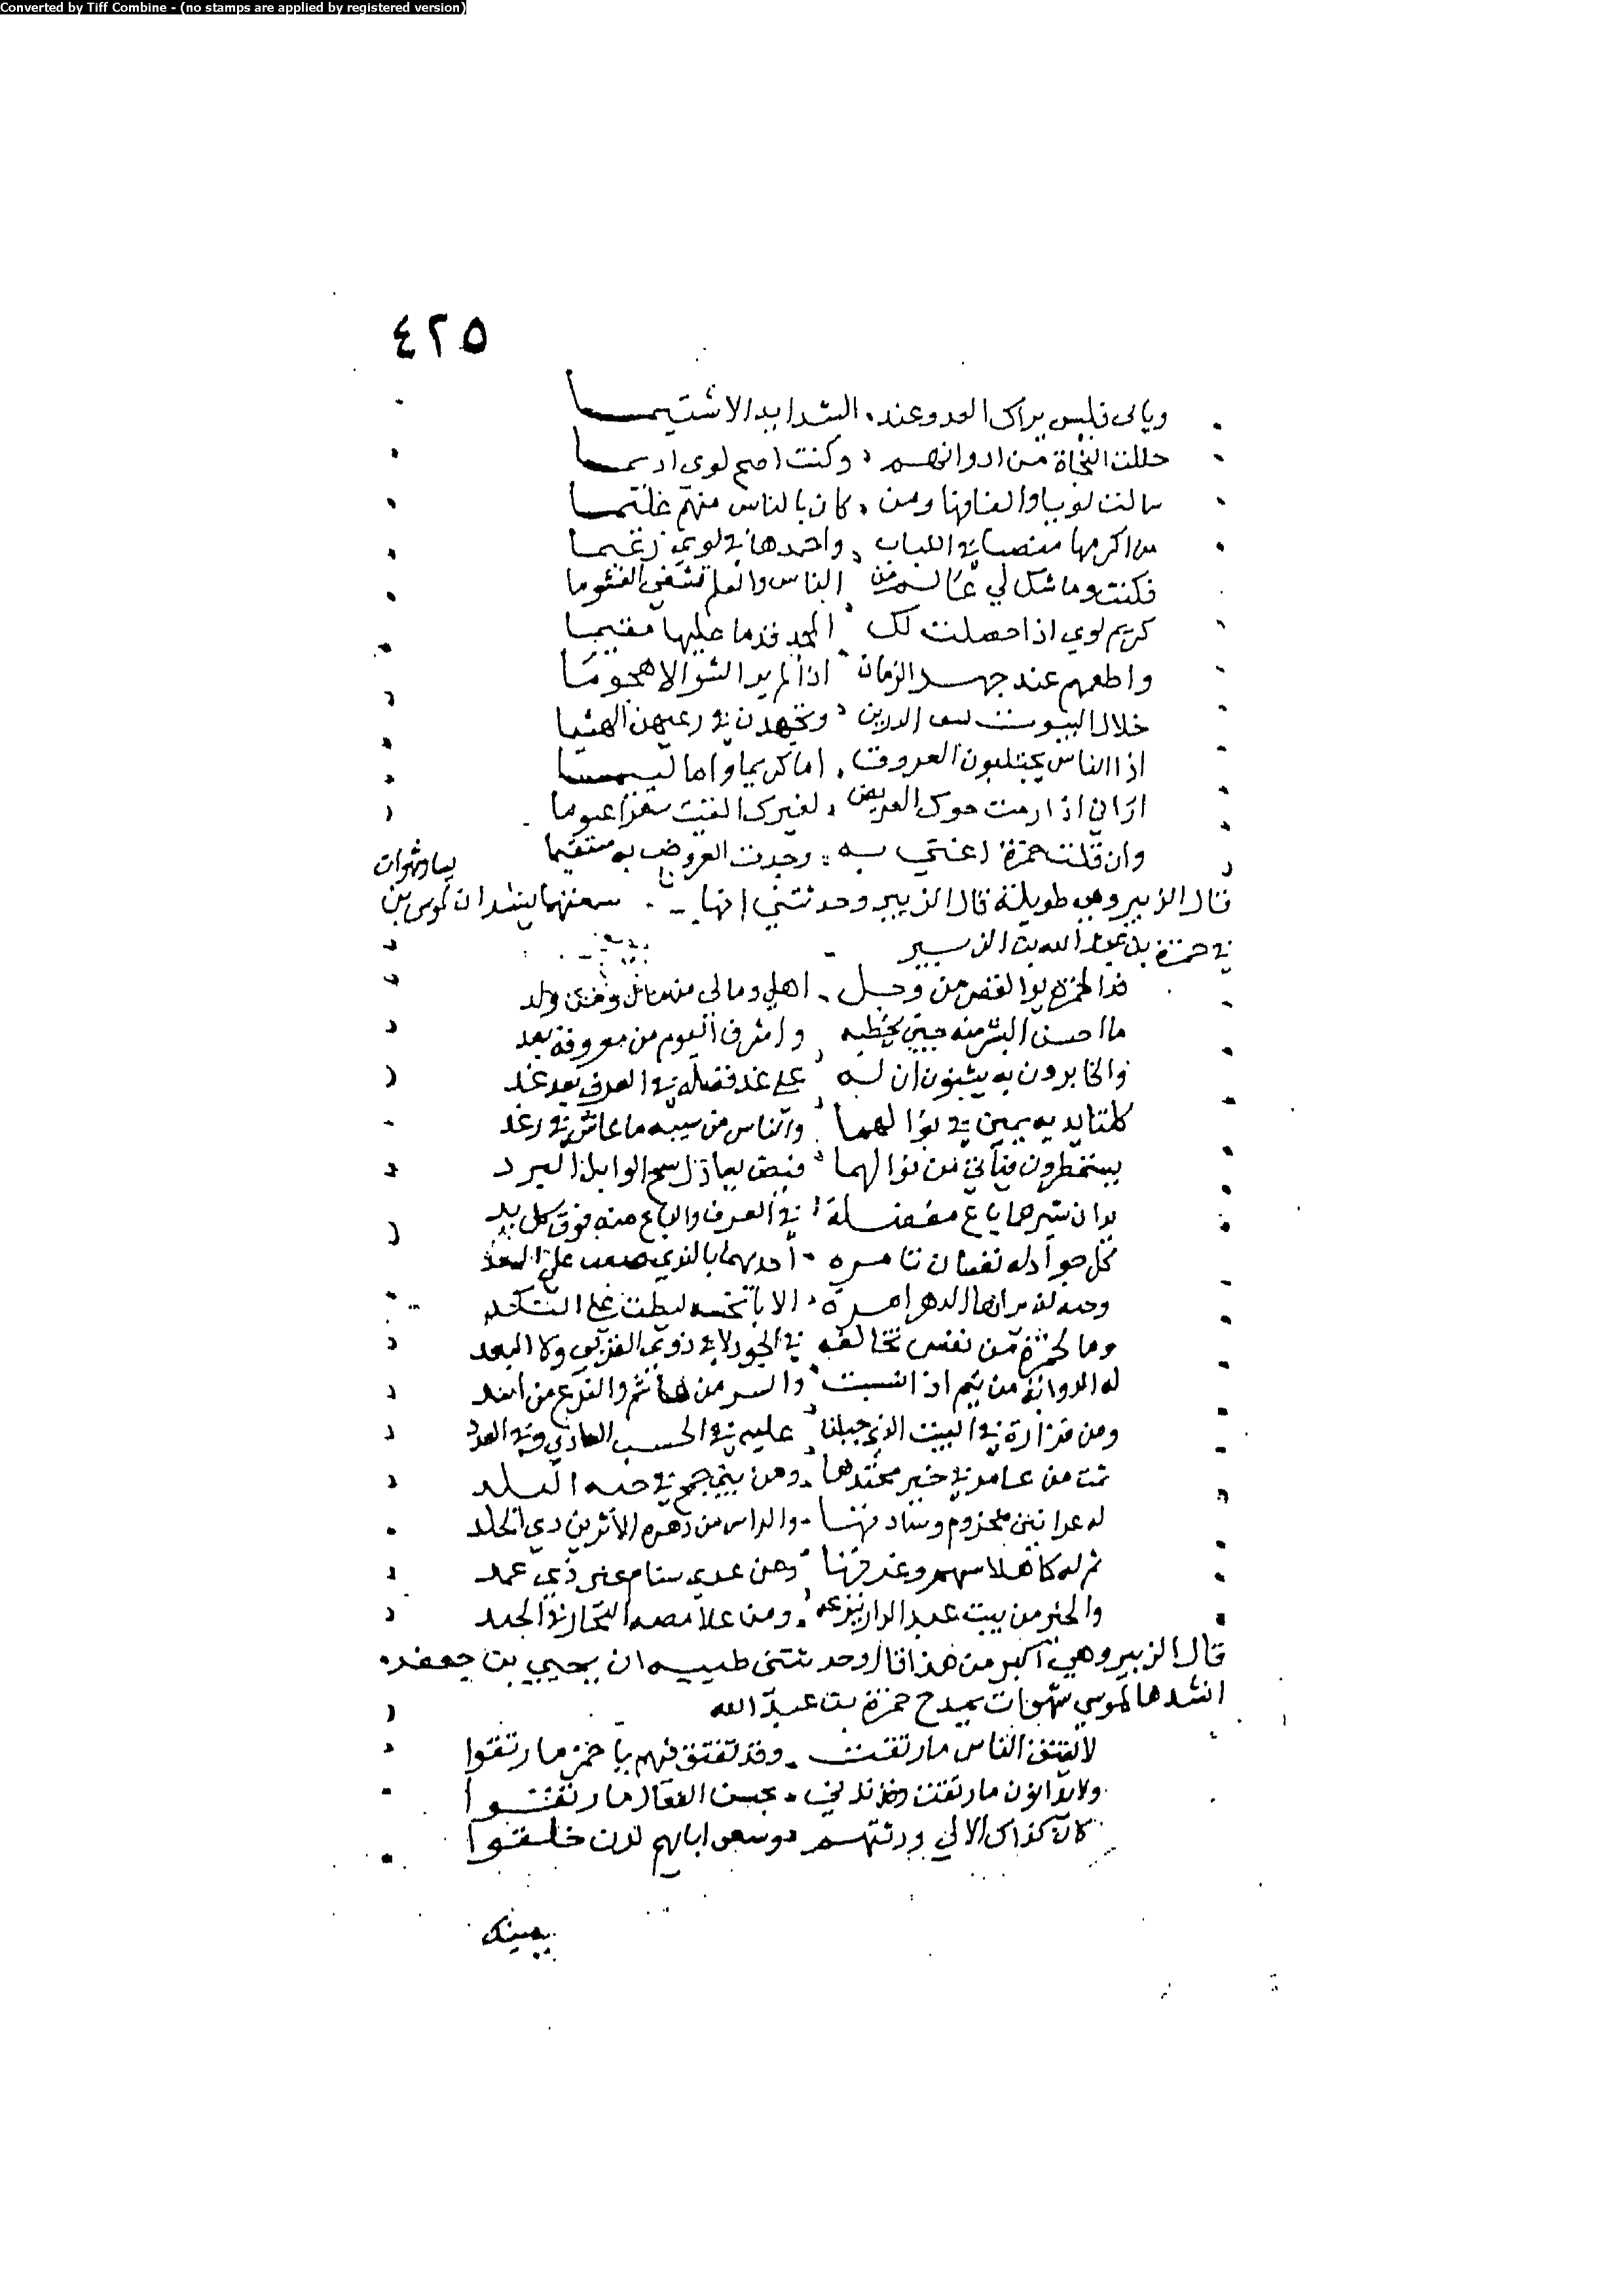 Converted by Tiff Combine - (no stamps are applied by registered version)
٤٢٥
ويالى فليس يراك العدو عند الشدايد الا شتيما
حللت النجاة من ادوانهم وكنت اصح لوى اديما
سالت لويا والفافها ومن كان بالناس منهم عليما
من اكرمها منصبا في اللباب واحمدها في لوي زعيما
فكنت وما شك لي عالم من الناس والعلم تشفي الغئوما
كريم لوي اذا حصلت لك المجد قدما عليها مقيما
واطعمهم عند جهد الزمان اذا لم ير الشو الا هجوما
خلال البيوت الدرين ويجهدن في رعيهن الهشيما
اذا الناس يجتلبون العروف اما كريما واما لييما
اراني اذا رمت حوك العريض لغيرك الفيت
وان قلت حمزة اعني به وجدت العروض به مستقيما
قال الزبير وهي طويلة قال الزبير وحدثتني انها سمعتها ينشدان لموسى بن
يسار شهوات
في حمزة بن عبد الله بن الزبير
فدا لحمزة يوا لقص من وجل اهلي ومالي من مال ومن ولد
ما احسن البشر منه حين يخطبه واشرف اليوم من معروفة بعد
والخابرون به يثبون ان له على غد فضله في العرف بعد غد
كلتا يديه يمين في نوالهما والناس من سيبه ما عاش في رغد
يستمطرون فيأتي من نوالهما فيض يباذل سح الوابل البرد
يدان شبرهما باع مفضلة في العرف والباع منه فوق كل يد
كل جواد له نفسان تامره احديهما بالذي صعب على
الدهر امرة الا باتخسه على النكد
وما لحمزة من نفس تخالفه في الجود لا في ذوي القربى ولا البعد
له الدوابة من تيم اذا انتسبت والسر من هاشم والفرع من اسد
ومن فزارة في البيت الذي جبلنا عليه في الحسب العادي وفي العدد
تمت من عامر في خير محتدها ومن بني جمح في حبه البلد
له عرانين مخزوم وسادتها والراس من زهرة الاثرين ذي الجلد
ثم له كاهلا سهم وغرتها ومن عدي سنام غير ذي عمد
والخير من بيت عبد الدار ينزعه ومن علا مصه النجار في الجمد
قال الزبير وهي اكبر من هذا قال وحدثتني طيبه ان يحيى بن جعفر
انشدها لموسى شهوات يمدح حمزة بن عبد الله
لا يفتق الناس ما رتقت وقد تفتق فيهم يا حمز ما رتقوا
ولا ما رتقت وقد بحسن الفعال ما رتقوا
كان كذاك الالى ورثتهم وسعى ابايهم لدن خلقوا
يمينك